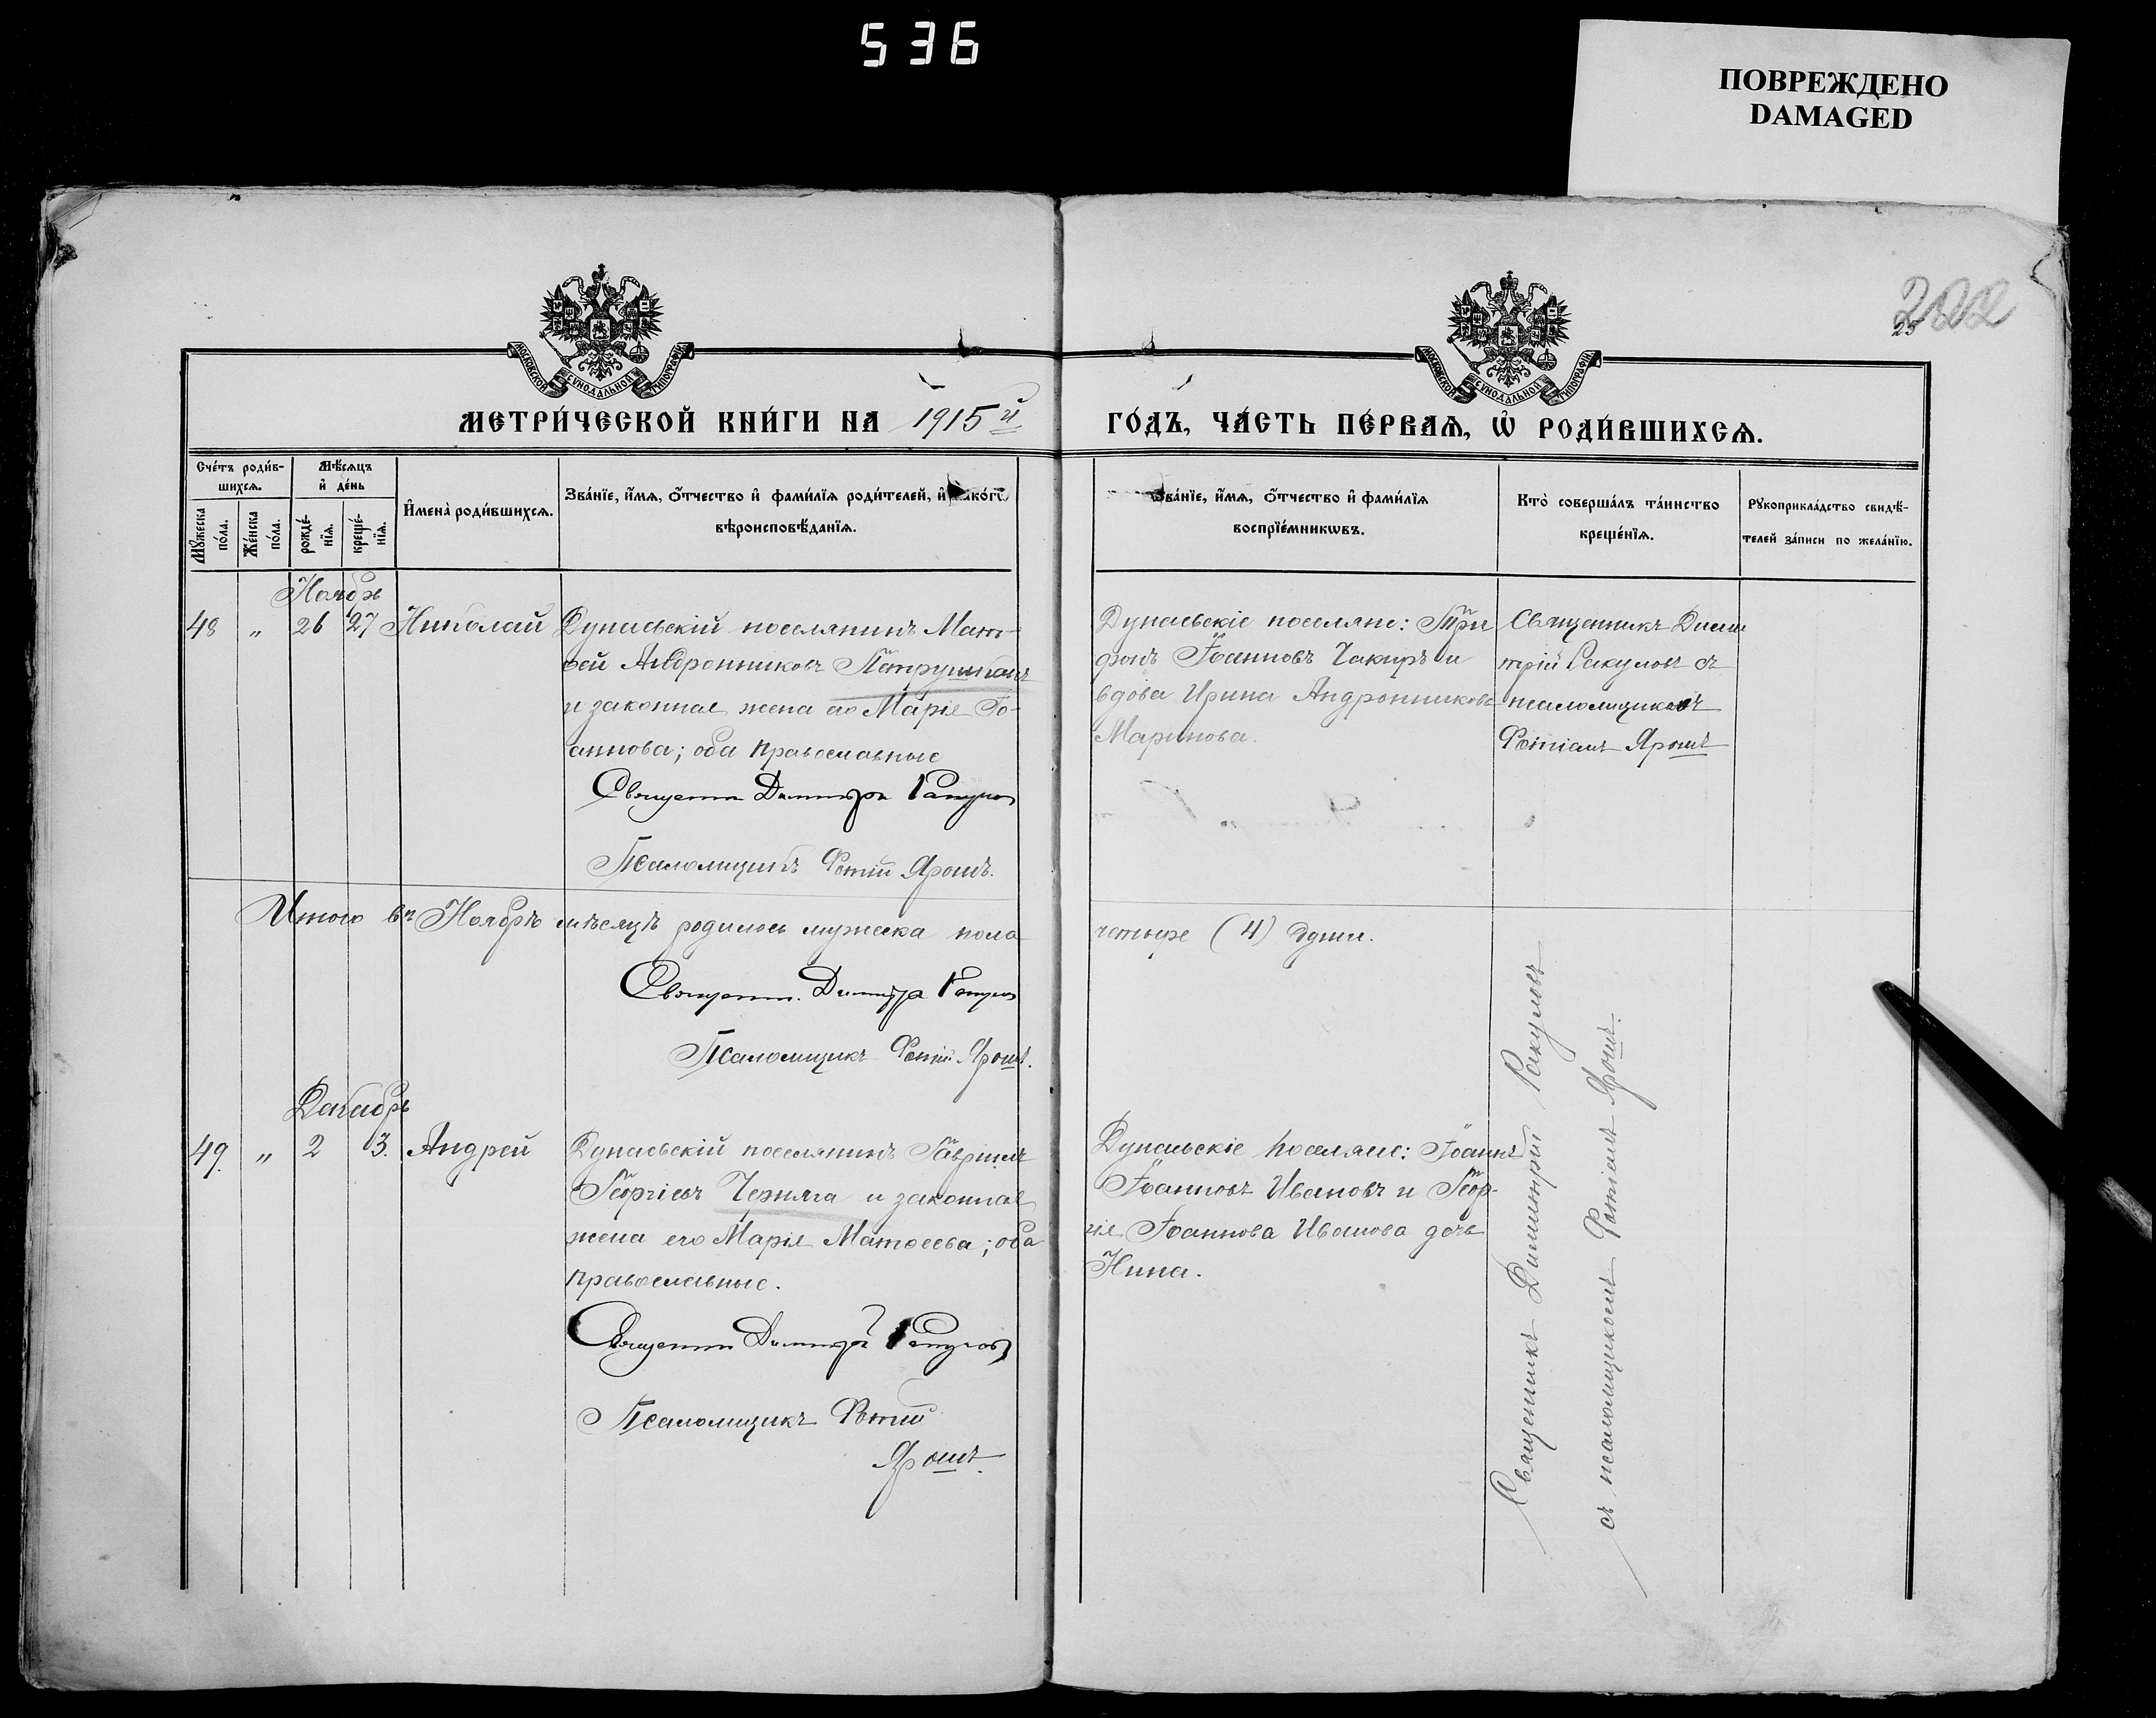 536
ПОВРЕЖДЕНО
DAMAGED
222
25
МОСКОВСКОЙ СѴНОДАЛЬНОЙ ТИПОГРАФІИ
МОСКОВСКОЙ СѴНОДАЛЬНОЙ ТИПОГРАФІИ
МЕТРИ́ЧЕСКОЙ КНИ́ГИ НА 1915й
ГО́ДЪ, ЧА́СТЬ ПЕ́РВАѦ, Ѡ҆ РОДИ́ВШИХСѦ.
Сче́тъ роди́в-
шихсѧ.
Мꙋ́жеска по́ла.
Же́нска по́ла.
Мѣ́сѧцъ
и҆ де́нь
рожде́-
нїѧ.
креще́-
нїѧ.
И҆мена̀ роди́вшихсѧ.
Зва́нїе, и҆́мѧ, ѻ҆́тчество и҆ фами́лїѧ роди́телей, и҆ како́гѡ
вѣроисповѣ́данїѧ.
Зва́нїе, и҆́мѧ, ѻ҆́тчество и҆ фами́лїѧ
воспрїе́мникѡвъ.
Кто̀ соверша́лъ та́инство
креще́нїѧ.
Рꙋкоприкла́дство свидѣ́-
телей за́писи по жела́нїю.
Ноябрь
48 " 26 27 Николай
Дунаевскій поселянинъ Мат-
ѳей Андрониковъ Петрушканъ
и законная жена его Марія Іо-
аннова; оба православные
Священн Димитрій Ракулов
Псаломщикъ Фотій Ярошъ.
Дунаевскіе поселяне: Три
фонъ Іоанновъ Чакиръ и
вдова Ирина Андроникова
Маринова.
Священникъ Дими
трій Ракуловъ съ
псаломщикомъ
Фотіемъ Ярошъ
Итого въ Ноябрѣ мѣсяцѣ родилось мужеска пола
четыре (4) души.
Священн. Димитрій Ракулов
Псаломщикъ Фотій Ярошъ.
Декабрь
49. " 2 3. Андрей
Дунаевскій поселянинъ Гавріилъ
Георгіевъ Черняга и законная
жена его Марія Матѳеева; оба
православные.
Священн Димитрій Ракуловъ
Псаломщикъ Фотій
Ярошъ.
Дунаевскіе поселяне: Іоаннъ
Іоанновъ Ивановъ и Геор-
гія Іоаннова Иванова дочь
Нина.
Священникъ Димитрій Ракуловъ
съ псаломщикомъ Фотіемъ Ярошъ.